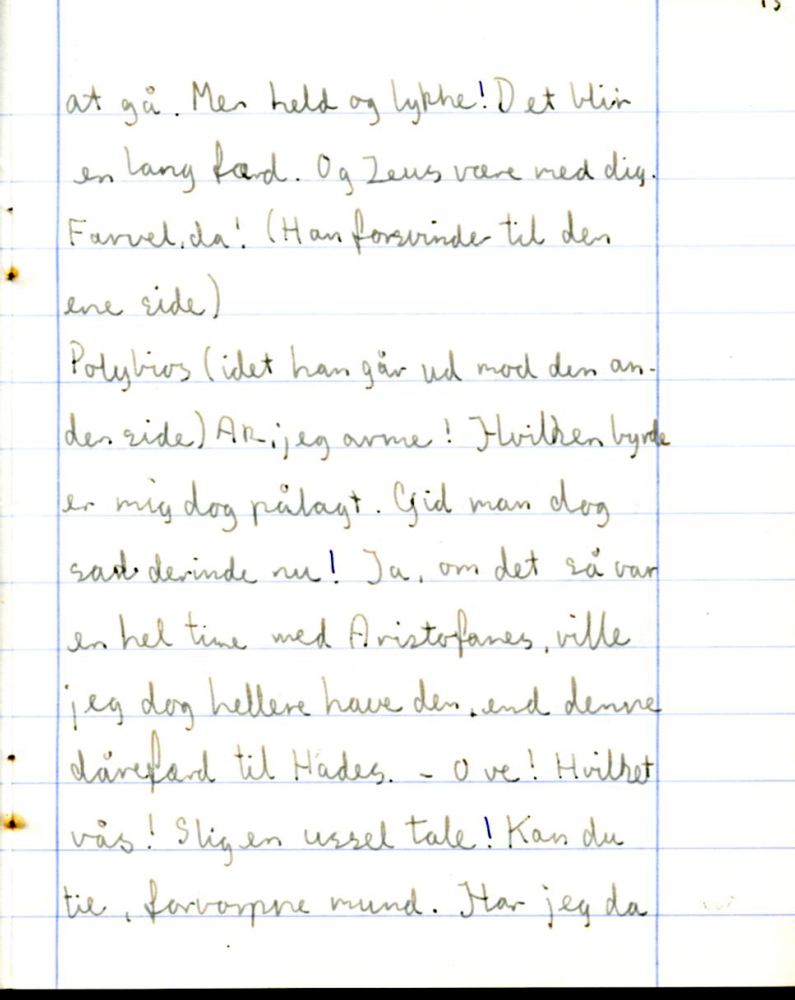 at gå. Men held og lykke! Det blir
en lang færd. Og Zeus være med dig.
Farvel, da! (Han forsvinder til den
ene side)
Polybios (idet han går ud mod den an-
den side) Ak, jeg arme! Hvilken byrde
er mig dog pålagt. Gid man dog
sad derinde nu! Ja, om det så var
en hel time med Aristofanes, ville
jeg dog hellere have den, end denne
dårefærd til Hades. - O ve! Hvilket
vås! Slig en ussel tale! Kan du
tie, forvorpne mund. Har jeg da